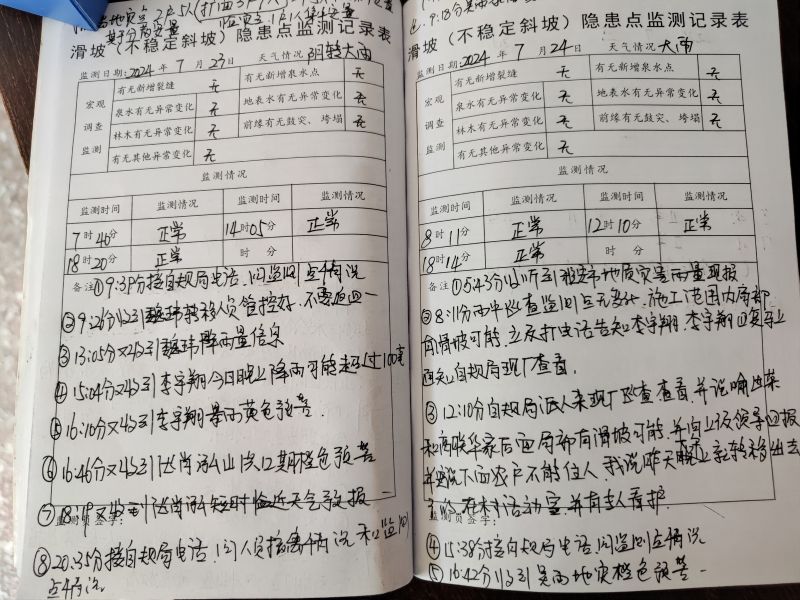 滑坡（不稳定斜坡）隐患点监测记录表
监测日期：2024年 7月 23日 天气情况 阴转大雨
宏观调查监测
有无新增裂缝 无 有无新增泉水点 无
泉水有无异常变化 无 地表水有无异常变化 无
林木有无异常变化 无 前缘有无鼓突、垮塌 无
有无其他异常变化 无
监测情况
监测时间 监测情况 监测时间 监测情况
7时46分 正常 14时05分 正常
18时20分 正常 时 分
备注：①9:39分接自规局电话，问监测点情况
②9:26分收到 转移人员管控好，不要返回
③13:05分又收到 降雨量信息
④15:04分又收到李宇翔今日晚上降雨可能超过100毫
⑤16:10分又收到李宇翔暴雨黄色预警.
⑥16:46分又收到 山洪 橙色预警
⑦18:19又收到 短时临近天气预报
监测员签字：
⑧20:35分接自规局电话，问人员 情况和监测
点情况
滑坡（不稳定斜坡）隐患点监测记录表
监测日期：2024年 7月 24日 天气情况 大雨
宏观调查监测
有无新增裂缝 无 有无新增泉水点 无
泉水有无异常变化 无 地表水有无异常变化 无
林木有无异常变化 无 前缘有无鼓突、垮塌 无
有无其他异常变化 无
监测情况
监测时间 监测情况 监测时间 监测情况
8时11分 正常 12时10分 正常
18时14分 正常 时 分
备注：①5:43分收听到雅安市地质灾害雨量预报
②8:11分雨中巡查监测点无变化，施工范围内局部
有滑坡可能，立及打电话告知李宇翔，李宇翔回复马上
通知自规局现厂查看.
③12:10分自规局派人来现厂巡查查看，并说
家后面局部有滑坡可能，并向上级领导回报
并说下面农户不能住人，我说昨天晚上就转移出去
了，在村活动室并有专人看护.
监测员签字：
④15:38分接自规局电话，问监测点情况
⑤16:42分收到暴雨地灾橙色预警.